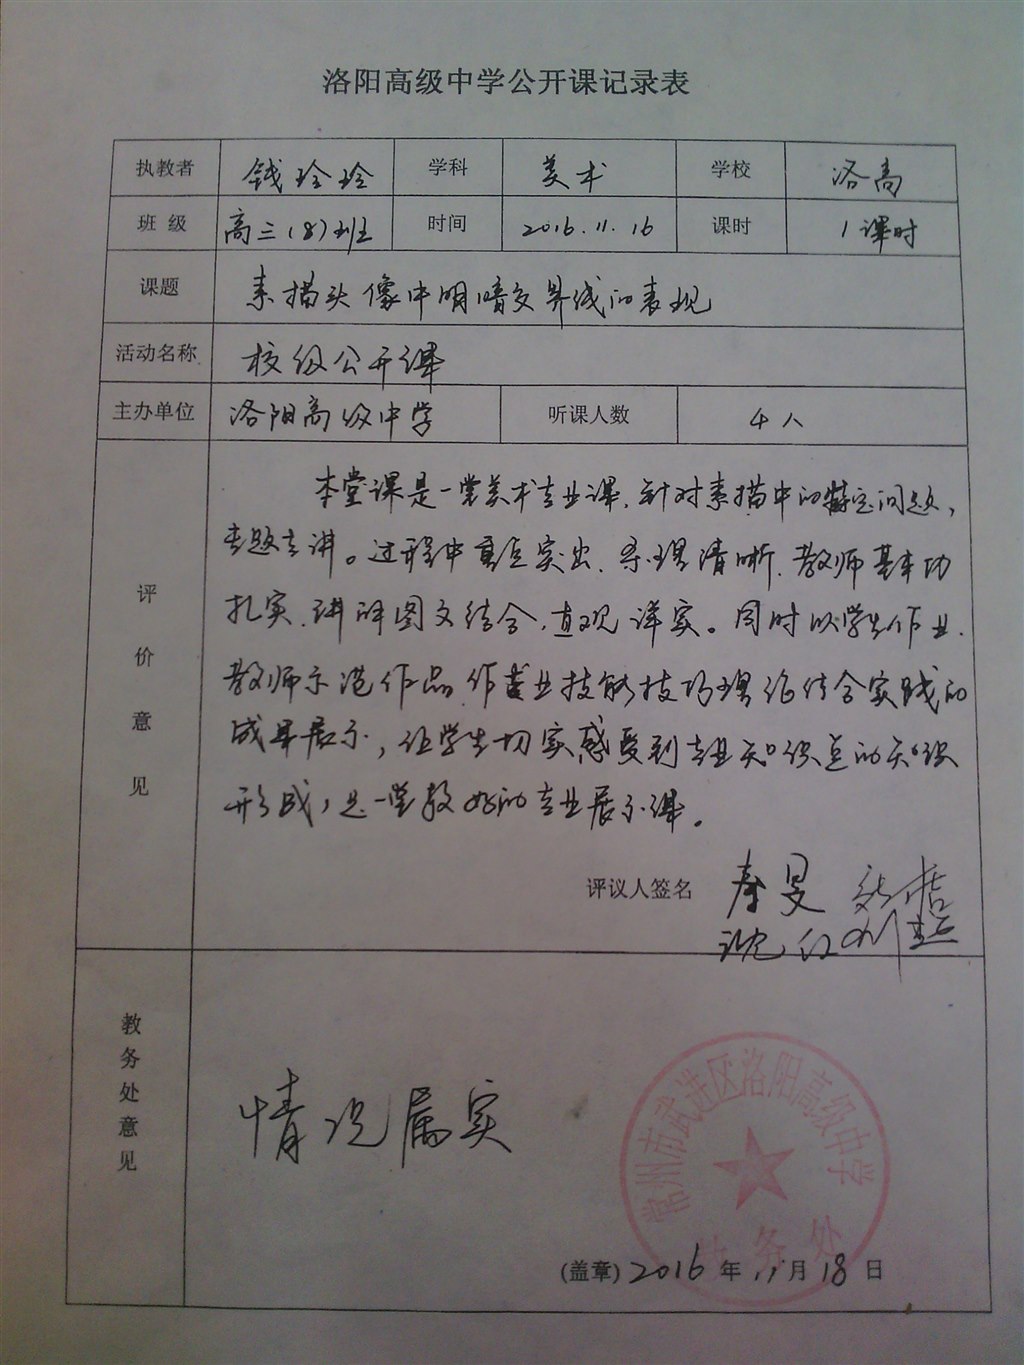 洛阳高级中学公开课记录表
执教者 钱玲玲 学科 美术 学校 洛高
班 级 高三(8)班 时间 2016.11.16 课时 1课时
课题 素描头像中明暗交界线的表现
活动名称 校级公开课
主办单位 洛阳高级中学 听课人数 4人
评价意见
本堂课是一堂美术专业课,针对素描中的特定问题,
专题专讲。过程中重点突出、条理清晰、教师基本功
扎实、讲解图文结合,直观详实。同时以学生作业、
教师示范作品 作业技能技巧理论结合实践的
成果展示,让学生切实感受到专业知识点的知识
形成,是一堂较好的专业展示课。
评议人签名 秦旻
沈红
教务处意见
情况属实
常州市武进区洛阳高级中学
教务处
(盖章) 2016 年 11 月 18 日